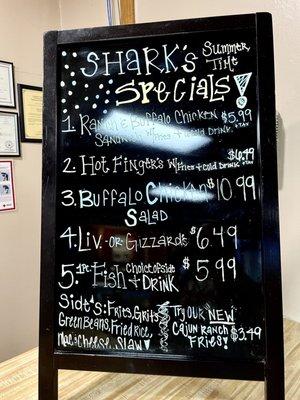 SHARK'S SUMMER TIME
SPECIALS!
1. RANCH & BUFFALO CHICKEN $5.99 +TAX
SANDWICH W/ FRIES + COLD DRINK
2. HOT FINGERS W/ FRIES + COLD DRINK $6.49
3. BUFFALO CHICKEN $10.99
SALAD
4. LIV. -OR- GIZZARDS $6.49
5. 1PC FISH CHOICE OF SIDE + DRINK $5.99
SIDE'S: FRIES, GRITS
GREEN BEANS, FRIED RICE
MAC + CHEESE, SLAW
TRY OUR NEW
CAJUN RANCH
FRIES! $3.49